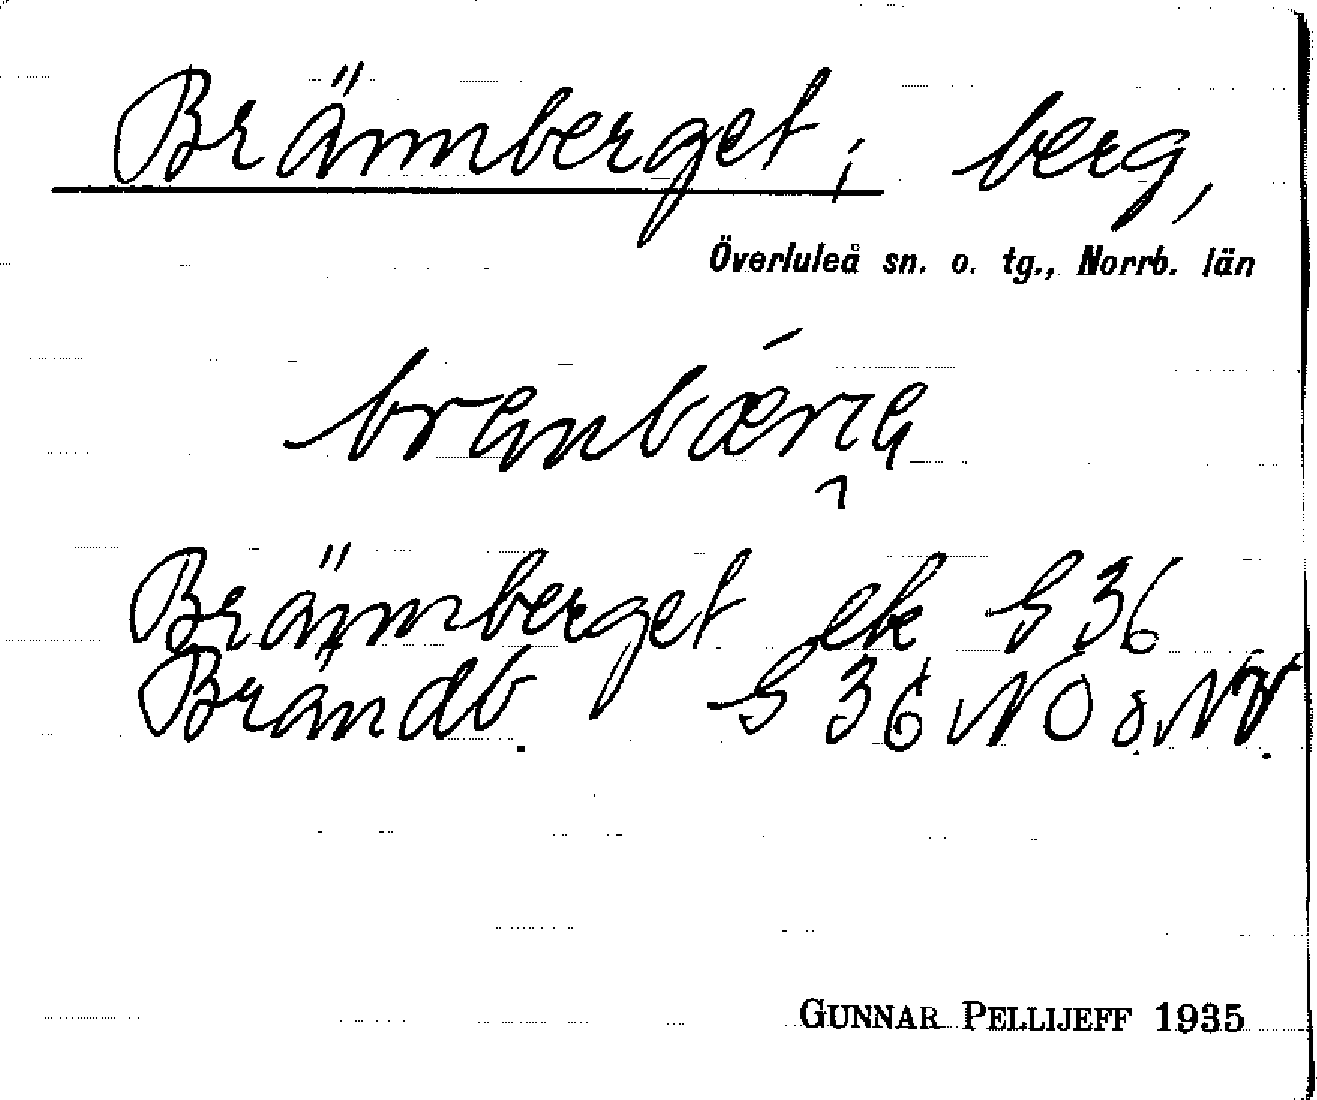 Brännberget, berg,
Överluleå sn. o. tg., Norrb. län
Brännberget ek S 36
Brändb. S 36 NO o. NV.
GUNNAR PELLIJEFF 1935